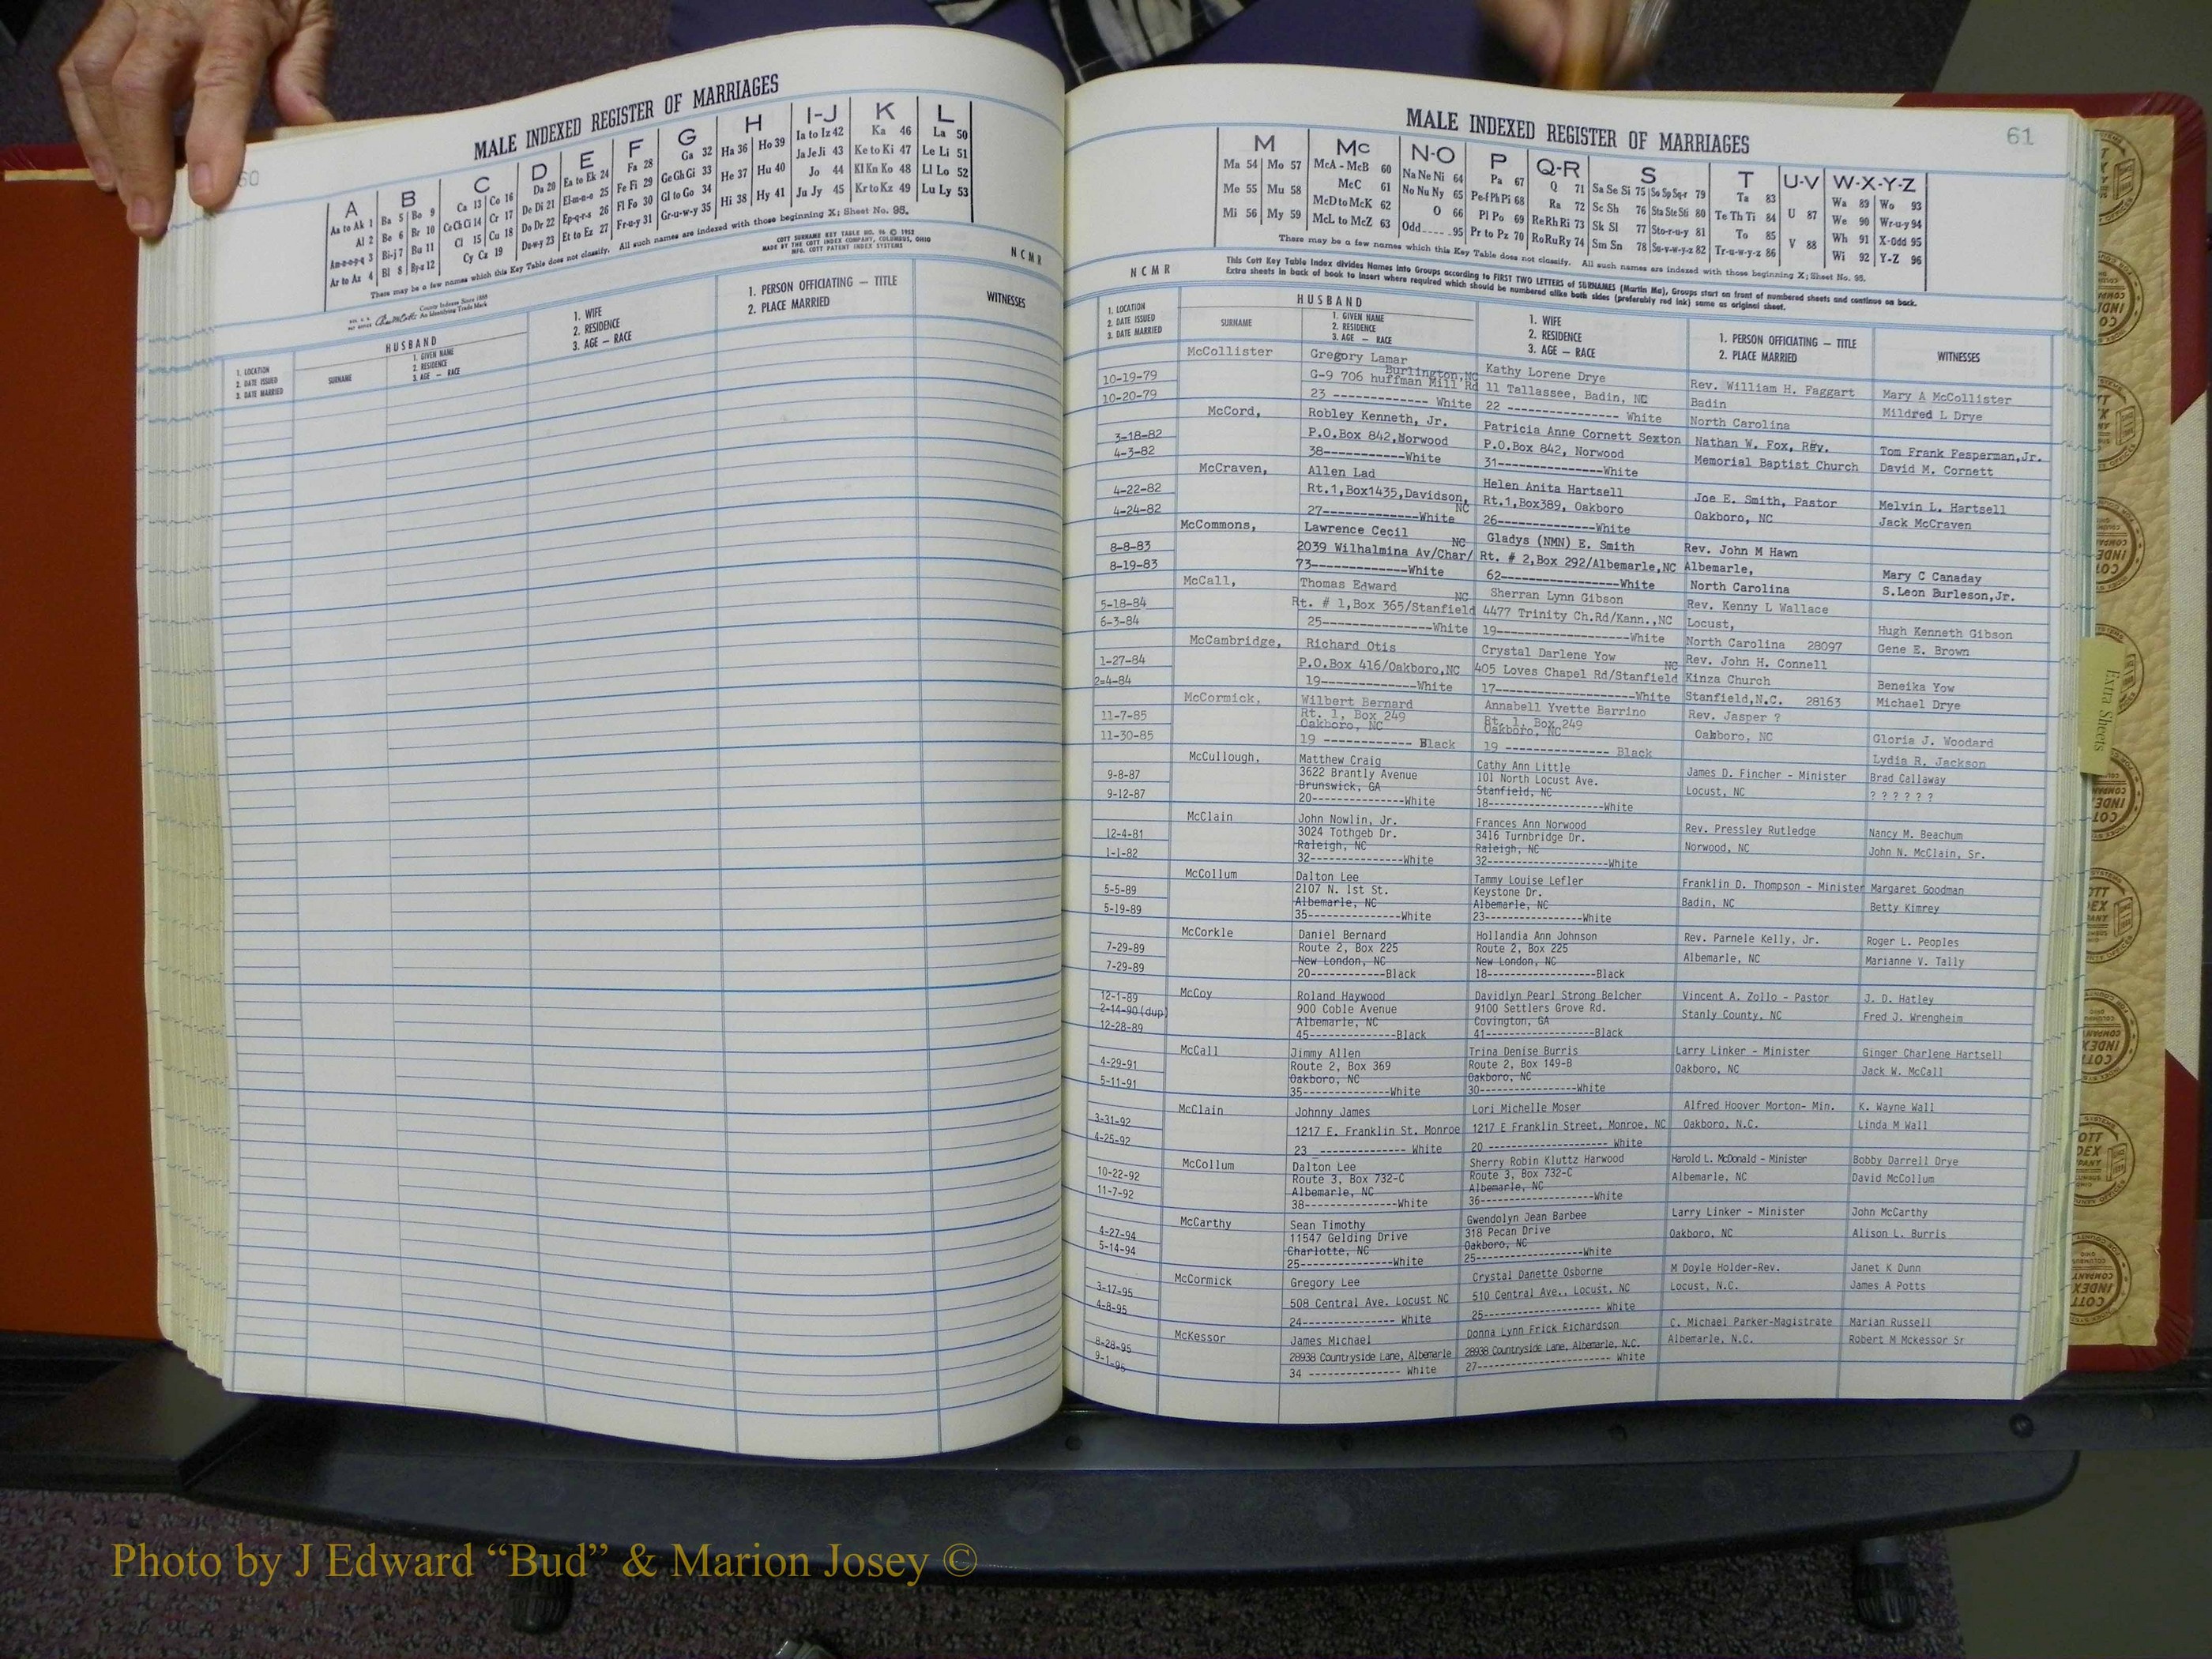 60
MALE INDEXED REGISTER OF MARRIAGES
A B C D E F G H I-J K L
Aa to Ak 1 Ba 5 Bo 9 Ca 13 Co 16 Da 20 Ea to Ek 24 Fa 28 Ga 32 Ha 36 Ho 39 Ia to Iz 42 Ka 46 La 50
Al 2 Be 6 Br 10 Ce Ch Ci 14 Cr 17 De Di 21 El-m-n-o 25 Fe Fi 29 Ge Gh Gi 33 He 37 Hu 40 Ja Je Ji 43 Ke to Ki 47 Le Li 51
Am-n-o-p-q 3 Bi-j 7 Bu 11 Cl 15 Cu 18 Do Dr 22 Ep-q-r-s 26 Fl Fo 30 Gl to Go 34 Hi 38 Hy 41 Jo 44 Kl Kn Ko 48 Ll Lo 52
Ar to Az 4 Bl 8 By-z 12 Cy Cz 19 Du-w-y 23 Et to Ez 27 Fr-u-y 31 Gr-u-w-y 35 Ju Jy 45 Kr to Kz 49 Lu Ly 53
There may be a few names which this Key Table does not classify. All such names are indexed with those beginning X; Sheet No. 95.
County Indexes Since 1888
An Identifying Trade Mark
COTT SURNAME KEY TABLE NO. 96 © 1952
MADE BY THE COTT INDEX COMPANY, COLUMBUS, OHIO
MFG. COTT PATENT INDEX SYSTEMS
NCMR
1. LOCATION
2. DATE ISSUED
3. DATE MARRIED
HUSBAND
SURNAME
1. GIVEN NAME
2. RESIDENCE
3. AGE — RACE
1. WIFE
2. RESIDENCE
3. AGE — RACE
1. PERSON OFFICIATING — TITLE
2. PLACE MARRIED
WITNESSES
MALE INDEXED REGISTER OF MARRIAGES
61
M Mc N-O P Q-R S T U-V W-X-Y-Z
Ma 54 Mo 57 McA - McB 60 Na Ne Ni 64 Pa 67 Q 71 Sa Se Si 75 So Sp Sq-r 79 Ta 83 U 87 Wa 89 Wo 93
Me 55 Mu 58 McC 61 No Nu Ny 65 Pe-f Ph Pi 68 Ra 72 Sc Sh 76 Sta Ste Sti 80 Te Th Ti 84 V 88 We 90 Wr-u-y 94
Mi 56 My 59 McD to McK 62 O 66 Pl Po 69 Re Rh Ri 73 Sk Sl 77 Sto-r-u-y 81 To 85 Wh 91 X-Odd 95
McL to McZ 63 Odd 95 Pr to Pz 70 Ro Ru Ry 74 Sm Sn 78 Su-v-w-y-z 82 Tr-u-w-y-z 86 Wi 92 Y-Z 96
There may be a few names which this Key Table does not classify. All such names are indexed with those beginning X; Sheet No. 95.
This Cott Key Table Index divides Names into Groups according to FIRST TWO LETTERS of SURNAMES (Martin Ma), Groups start on front of numbered sheets and continue on back.
Extra sheets in back of book to insert where required which should be numbered alike both sides (preferably red ink) same as original sheet.
NCMR
1. LOCATION
2. DATE ISSUED
3. DATE MARRIED
HUSBAND
SURNAME
1. GIVEN NAME
2. RESIDENCE
3. AGE — RACE
1. WIFE
2. RESIDENCE
3. AGE — RACE
1. PERSON OFFICIATING — TITLE
2. PLACE MARRIED
WITNESSES
McCollister Gregory Lamar Kathy Lorene Drye
Burlington,NC
10-19-79 G-9 706 huffman Mill Rd 11 Tallassee, Badin, NC Rev. William H. Faggart Mary A McCollister
10-20-79 23 ------------ White 22 ------------ White Badin Mildred L Drye
North Carolina
McCord, Robley Kenneth, Jr. Patricia Anne Cornett Sexton Nathan W. Fox, Rev.
3-18-82 P.O.Box 842,Norwood P.O.Box 842, Norwood Tom Frank Fesperman,Jr.
4-3-82 38-----------White 31-------------White Memorial Baptist Church David M. Cornett
McCraven, Allen Lad Helen Anita Hartsell
4-22-82 Rt.1,Box1435,Davidson, NC Rt.1,Box389, Oakboro Joe E. Smith, Pastor Melvin L. Hartsell
4-24-82 27-------------White 26-------------White Oakboro, NC Jack McCraven
McCommons, Lawrence Cecil Gladys (NMN) E. Smith
8-8-83 2039 Wilhalmina Av/Char/ NC Rt. # 2,Box 292/Albemarle,NC Rev. John M Hawn Mary C Canaday
8-19-83 73-------------White 62---------------White Albemarle, S.Leon Burleson,Jr.
North Carolina
McCall, Thomas Edward Sherran Lynn Gibson
5-18-84 Rt. # 1,Box 365/Stanfield NC 4477 Trinity Ch.Rd/Kann.,NC Rev. Kenny L Wallace Hugh Kenneth Gibson
6-3-84 25---------------White 19----------------White Locust, Gene E. Brown
North Carolina 28097
McCambridge, Richard Otis Crystal Darlene Yow
1-27-84 P.O.Box 416/Oakboro,NC 405 Loves Chapel Rd/Stanfield NC Rev. John H. Connell Beneika Yow
2=4-84 19-------------White 17------------------White Kinza Church Michael Drye
Stanfield,N.C. 28163
McCormick, Wilbert Bernard Annabell Yvette Barrino
11-7-85 Rt. 1, Box 249 Rt. 1, Box 249 Rev. Jasper ? Gloria J. Woodard
Oakboro, NC Oakboro, NC
11-30-85 19 ------------ Black 19 ------------- Black Oakboro, NC Lydia R. Jackson
McCullough, Matthew Craig Cathy Ann Little
9-8-87 3622 Brantly Avenue 101 North Locust Ave. James D. Fincher - Minister Brad Callaway
Brunswick, GA Stanfield, NC
9-12-87 20---------------White 18-------------------White Locust, NC ? ? ? ? ? ?
McClain John Nowlin, Jr. Frances Ann Norwood
12-4-81 3024 Tothgeb Dr. 3416 Turnbridge Dr. Rev. Pressley Rutledge Nancy M. Beachum
Raleigh, NC Raleigh, NC
1-1-82 32---------------White 32-------------------White Norwood, NC John N. McClain, Sr.
McCollum Dalton Lee Tammy Louise Lefler
5-5-89 2107 N. 1st St. Keystone Dr. Franklin D. Thompson - Minister Margaret Goodman
Albemarle, NC Albemarle, NC
5-19-89 35---------------White 23----------------White Badin, NC Betty Kimrey
McCorkle Daniel Bernard Hollandia Ann Johnson
7-29-89 Route 2, Box 225 Route 2, Box 225 Rev. Parnele Kelly, Jr. Roger L. Peoples
New London, NC New London, NC
7-29-89 20-------------Black 18------------------Black Albemarle, NC Marianne V. Tally
12-1-89 McCoy Roland Haywood Davidlyn Pearl Strong Belcher Vincent A. Zollo - Pastor J. D. Hatley
2-14-90(dup) 900 Coble Avenue 9100 Settlers Grove Rd. Stanly County, NC Fred J. Wrengheim
Albemarle, NC Covington, GA
12-28-89 45--------------Black 41------------------Black
McCall Jimmy Allen Trina Denise Burris Larry Linker - Minister Ginger Charlene Hartsell
4-29-91 Route 2, Box 369 Route 2, Box 149-B Oakboro, NC Jack W. McCall
Oakboro, NC Oakboro, NC
5-11-91 35---------------White 30----------------White
McClain Johnny James Lori Michelle Moser Alfred Hoover Morton- Min. K. Wayne Wall
3-31-92 1217 E. Franklin St. Monroe 1217 E Franklin Street, Monroe, NC Oakboro, N.C. Linda M Wall
4-25-92 23 --------------- White 20 -------------------- White
McCollum Dalton Lee Sherry Robin Kluttz Harwood Harold L. McDonald - Minister Bobby Darrell Drye
10-22-92 Route 3, Box 732-C Route 3, Box 732-C Albemarle, NC David McCollum
Albemarle, NC Albemarle, NC
11-7-92 38---------------White 36-------------------White
McCarthy Sean Timothy Gwendolyn Jean Barbee Larry Linker - Minister John McCarthy
4-27-94 11547 Gelding Drive 318 Pecan Drive Oakboro, NC Alison L. Burris
Charlotte, NC Oakboro, NC
5-14-94 25---------------White 25------------------White
McCormick Gregory Lee Crystal Danette Osborne M Doyle Holder-Rev. Janet K Dunn
3-17-95 508 Central Ave. Locust NC 510 Central Ave., Locust, NC Locust, N.C. James A Potts
4-8-95 24--------------- White 25------------------- White
McKessor James Michael Donna Lynn Frick Richardson C. Michael Parker-Magistrate Marian Russell
8-28-95 28938 Countryside Lane, Albemarle 28938 Countryside Lane, Albemarle, N.C. Albemarle, N.C. Robert M Mckessor Sr
9-1-95 34 --------------- White 27---------------------- White
Extra Sheets
Photo by J Edward “Bud” & Marion Josey ©